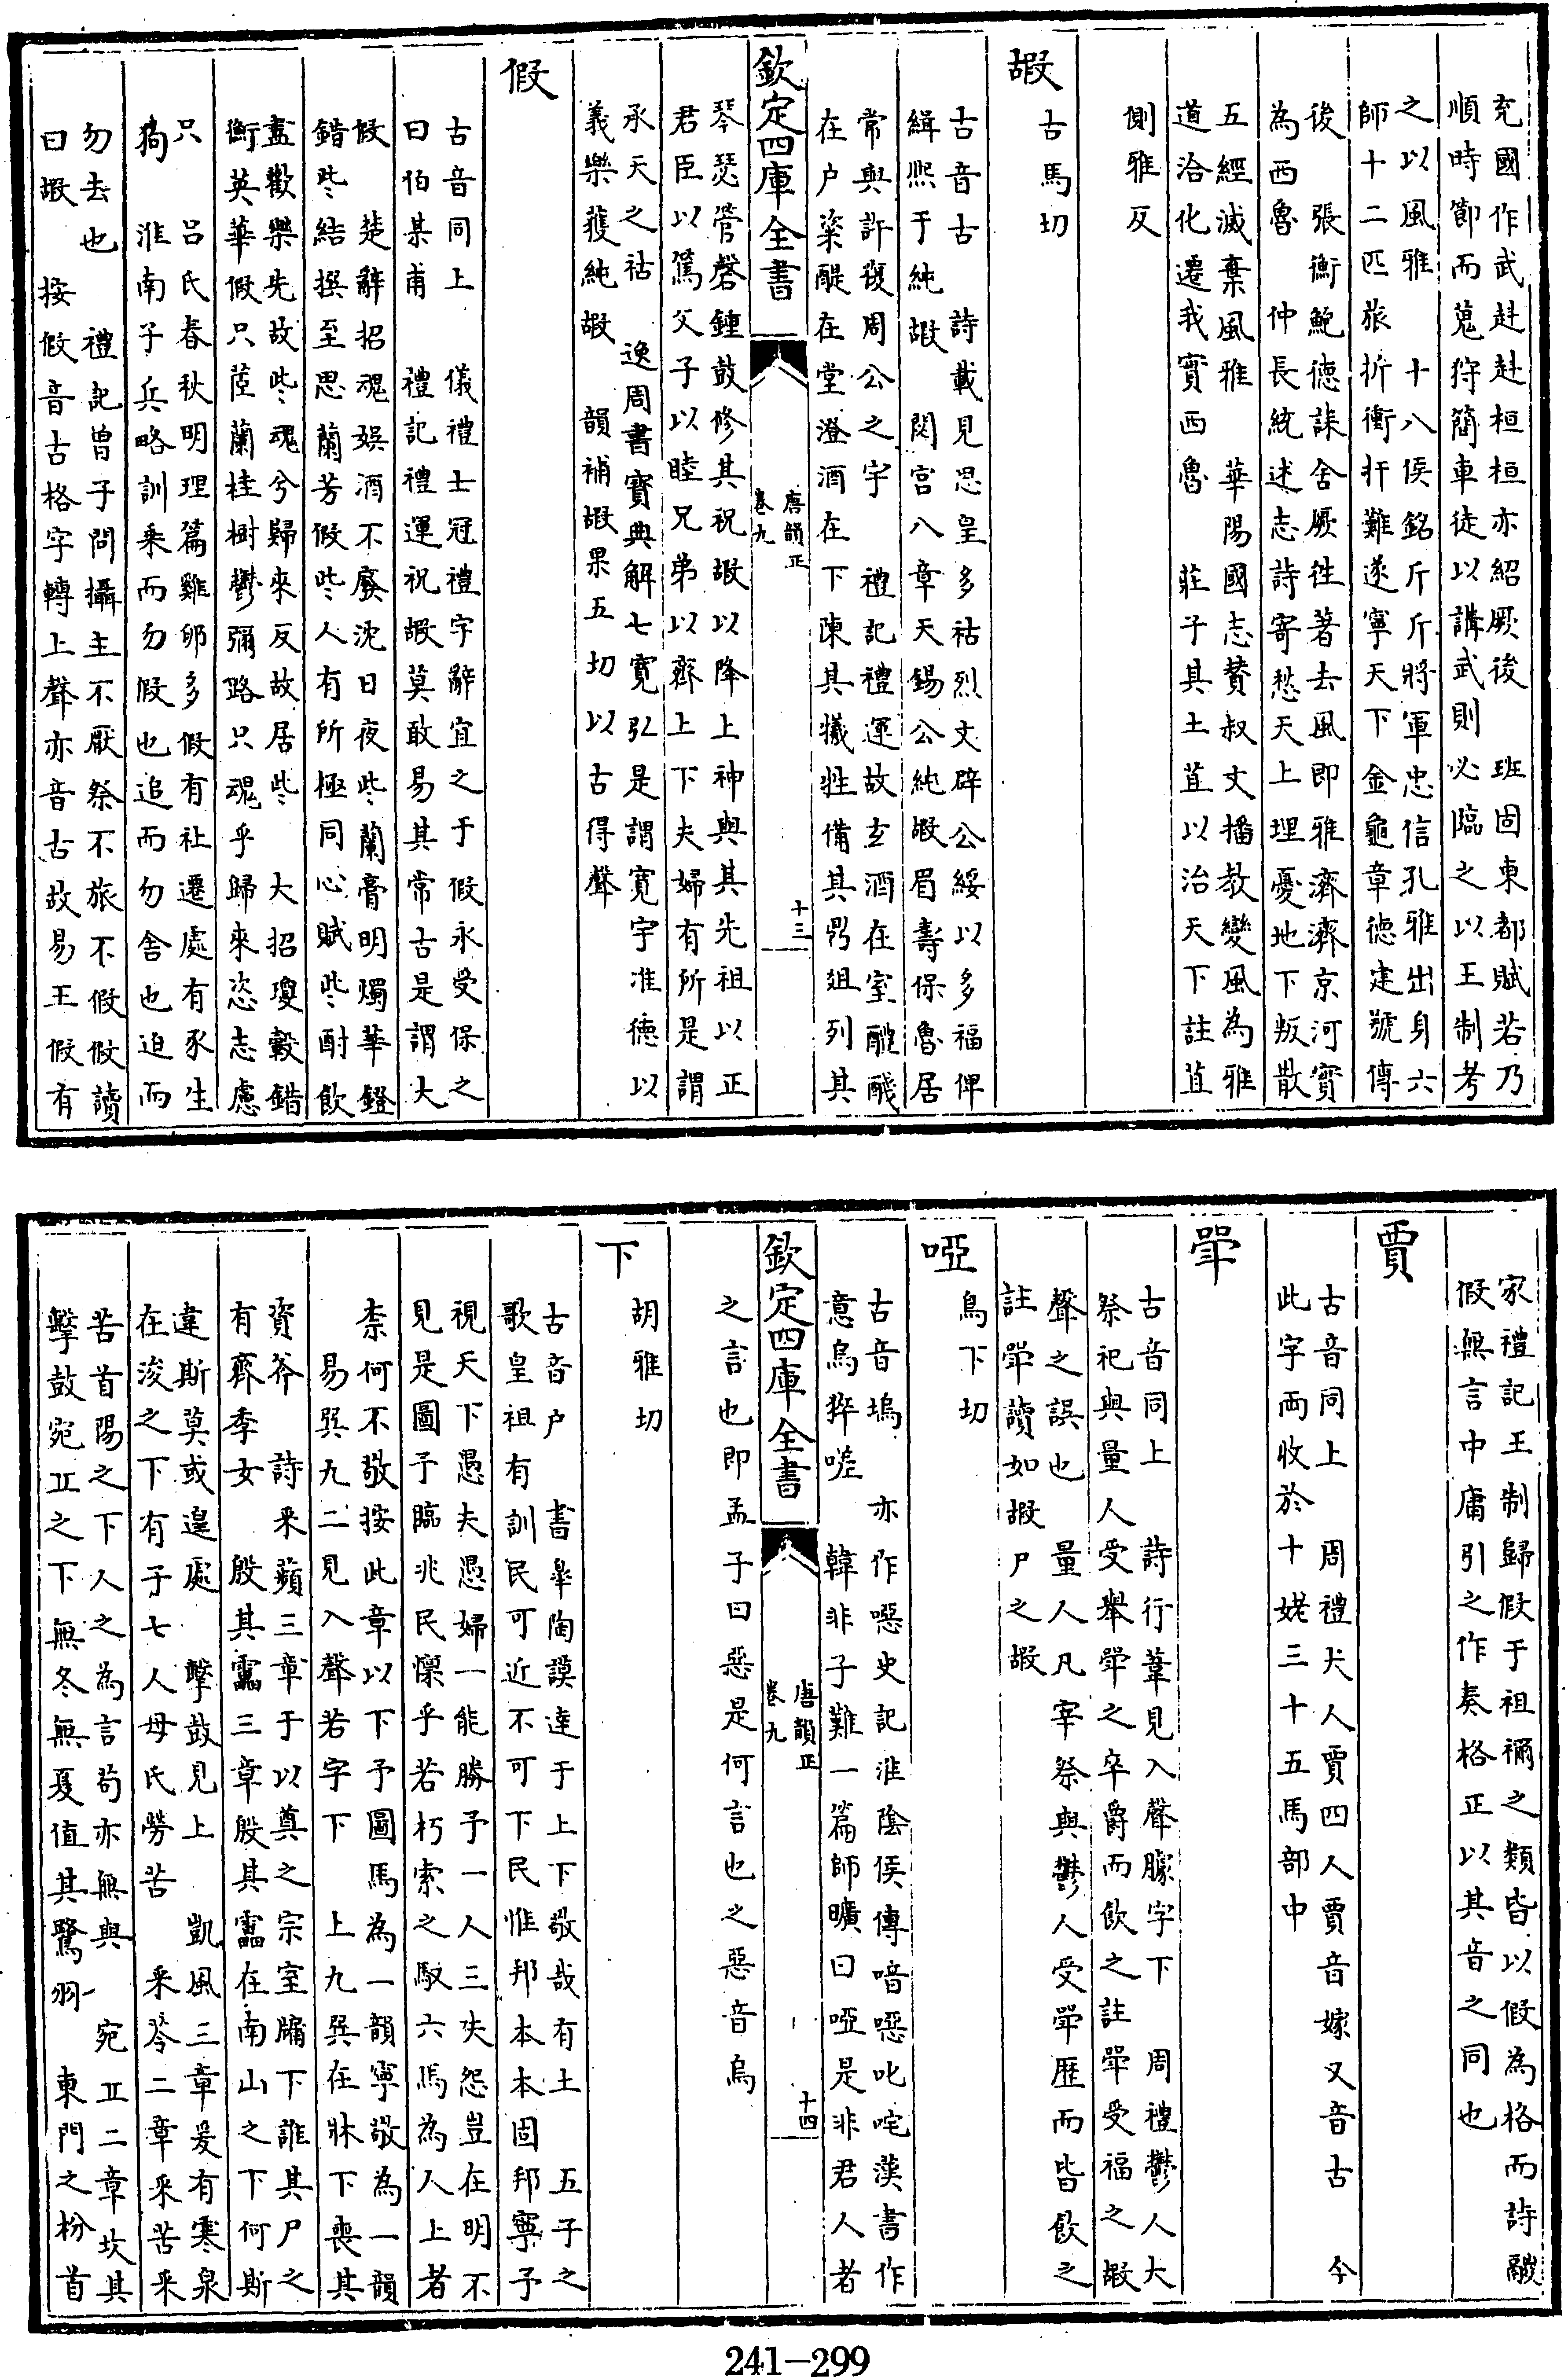 充國作武赳赳桓桓亦紹厥後　班固東都賦若乃
順時節而蒐狩簡車徒以講武則必臨之以王制考
之以風雅　十八侯銘斤斤將軍忠信孔雅出身六
師十二匹旅折衝扞難遂寧天下金龜章德建號傳
後　張衡鮑德誄舍厥往著去風即雅濟濟京河實
為西魯　仲長統述志詩寄愁天上埋憂地下叛散
五經滅棄風雅　華陽國志贊叔文播教變風為雅
道洽化遷我實西魯　莊子其土苴以治天下註苴
側雅反
古馬切
嘏
古音古　詩載見思皇多祜烈文辟公綏以多福俾
緝熙于純嘏　閟宮八章天錫公純嘏眉壽保魯居
常與許復周公之宇　禮記禮運故玄酒在室醴醆
在户粢醍在堂澄酒在下陳其犧牲備其鼎俎列其
欽定四庫全書
唐韻正
卷九
十三
琴瑟管磬鍾鼓修其祝嘏以降上神與其先祖以正
君臣以篤父子以睦兄弟以齊上下夫婦有所是謂
承天之祜　逸周書寶典解七寛弘是謂寛宇准德以
義樂獲純嘏　韻補嘏果五切以古得聲
假
古音同上　儀禮士冠禮字辭宜之于假永受保之
曰伯某甫　禮記禮運祝嘏莫敢易其常古是謂大
假　楚辭招魂娛酒不廢沈日夜些蘭膏明燭華鐙
錯些結撰至思蘭芳假些人有所極同心賦些酎飲
盡歡樂先故些魂兮歸來反故居些　大招瓊轂錯
衡英華假只茝蘭桂樹鬱彌路只魂乎歸來恣志慮
只　吕氏春秋明理篇雞卵多假有社遷處有豕生
狗　淮南子兵略訓乘而勿假也追而勿舍也迫而
勿去也　禮記曾子問攝主不厭祭不旅不假假讀
曰嘏　按假音古格字轉上聲亦音古故易王假有
家禮記王制歸假于祖禰之類皆以假為格而詩鬷
假無言中庸引之作奏格正以其音之同也
賈
古音同上　周禮犬人賈四人賈音嫁又音古　今
此字兩收於十姥三十五馬部中
斝
古音同上　詩行葦見入聲臄字下　周禮鬱人大
祭祀與量人受舉斝之卒爵而飲之註斝受福之嘏
聲之誤也　量人凡宰祭與鬱人受斝歷而皆飲之
註斝讀如嘏尸之嘏
烏下切
啞
古音塢　亦作噁史記淮陰侯傳喑噁叱咤漢書作
意烏猝嗟　韓非子難一篇師曠曰啞是非君人者
欽定四庫全書
唐韻正
卷九
十四
之言也即孟子曰惡是何言也之惡音烏
胡雅切
下
古音户　書皋陶謨達于上下敬哉有土　五子之
歌皇祖有訓民可近不可下民惟邦本本固邦寧予
視天下愚夫愚婦一能勝予一人三失怨豈在明不
見是圖予臨兆民懍乎若朽索之馭六馬為人上者
柰何不敬按此章以下予圖馬為一韻寧敬為一韻
易巽九二見入聲若字下　上九巽在牀下喪其
資斧　詩采蘋三章于以奠之宗室牖下誰其尸之
有齊季女　殷其靁三章殷其靁在南山之下何斯
違斯莫或遑處　擊鼓見上　凱風三章爰有寒泉
在浚之下有子七人母氏勞苦　采苓二章采苦采
苦首陽之下人之為言苟亦無與　宛丘二章坎其
擊鼓宛丘之下無冬無夏值其鷺羽　東門之枌首
241—299